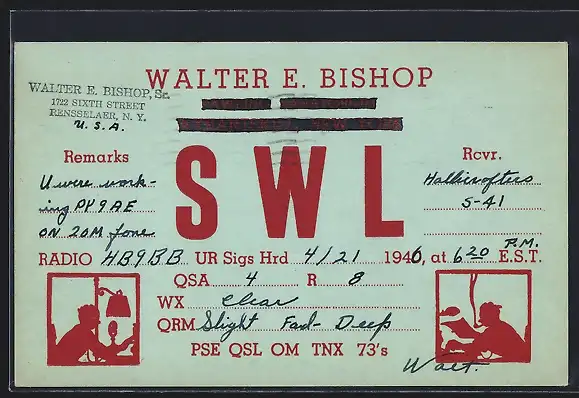 WALTER E. BISHOP
WALTER E. BISHOP, Sr.
1722 SIXTH STREET
RENSSELAER, N. Y.
U. S. A.
Remarks
U were work-
ing PK9AE
ON 20M fone
SWL
Rcvr.
Hallicrafters
S-41
RADIO HB9BB UR Sigs Hrd 4/21 1946, at 6 20 P.M. E.S.T.
QSA 4 R 8
WX Clear
QRM Slight Fad- Deep
PSE QSL OM TNX 73's
Walt.